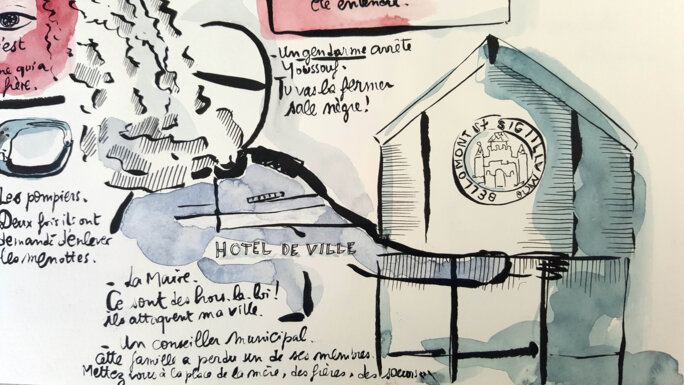 été entendre.
c'est
ne qui a
frère.
- Un gendarme arrête
Youssouf.
Tu vas la fermer
sale nègre!
BELLOMONT
SIGILLUM
Les pompiers.
Deux fois ils ont
demandé d'enlever
les menottes.
HOTEL DE VILLE
- La Maire.
Ce sont des hors-la-loi!
ils attaquent ma ville.
- Un conseiller municipal.
Cette famille a perdu un de ses membres.
Mettez vous à la place de la mère, des frères, des soeurs